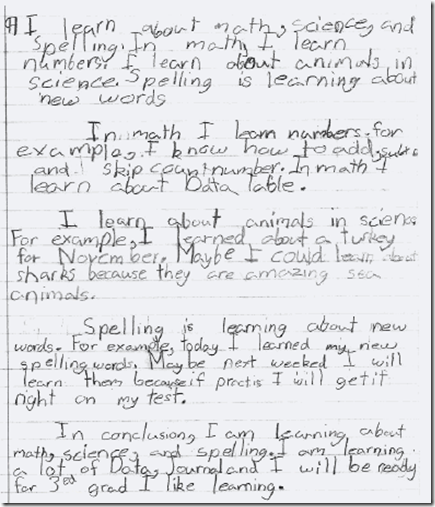 ¶ I learn about math, science, and
spelling. In math, I learn
numbers. I learn about animals in
science. Spelling is learning about
new words

In math I learn numbers. for
example, I know how to add, subt
and I skip count number. In math I
learn about Data Table.

I learn about animals in science
For example, I learned about a turkey
for November. Maybe I could learn about
sharks because they are amazing sea
animals.

Spelling is learning about new
words. For example, today I learned my new
spelling words. Maybe next weeked I will
learn them because if practis I will get it
right on my test.

In conclusion, I am learning about
math, science, and spelling. I am learning
a lot of Data, Journal and I will be ready
for 3ed grad I like learning.